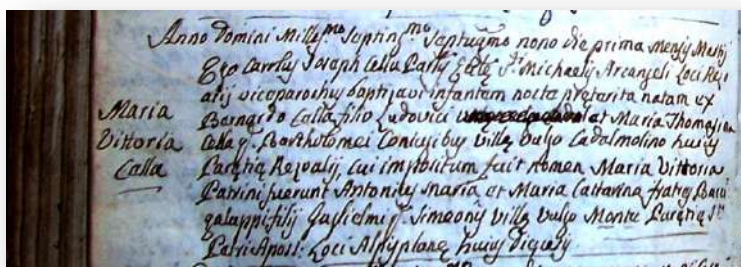 Anno Domini Mille.mo Septing.mo Septuag.mo nono die prima Mensis Martij
Ego Carolus Joseph Cella Par.lis Eccl.æ S.ti Michaelis Arcangeli Loci
viceparochus baptizavi infantem nocte præterita natam ex
Bernardo Cella filio Ludovici et Maria Thomasina
Cella q. Bartholomei Coniugibus villæ vulgo Cadalmolino huius
Parætiæ Rezoalij, cui impositum fuit nomen Maria Vittoria
Patrini fuerunt Antonius Maria et Maria Cattarina fratres
filij Guglielmi q. Simeonis villæ vulgo Monte Parætiæ S.ti
Petri Apost. Loci Alpypianæ huius Diæcesis
Maria
Vittoria
Cella